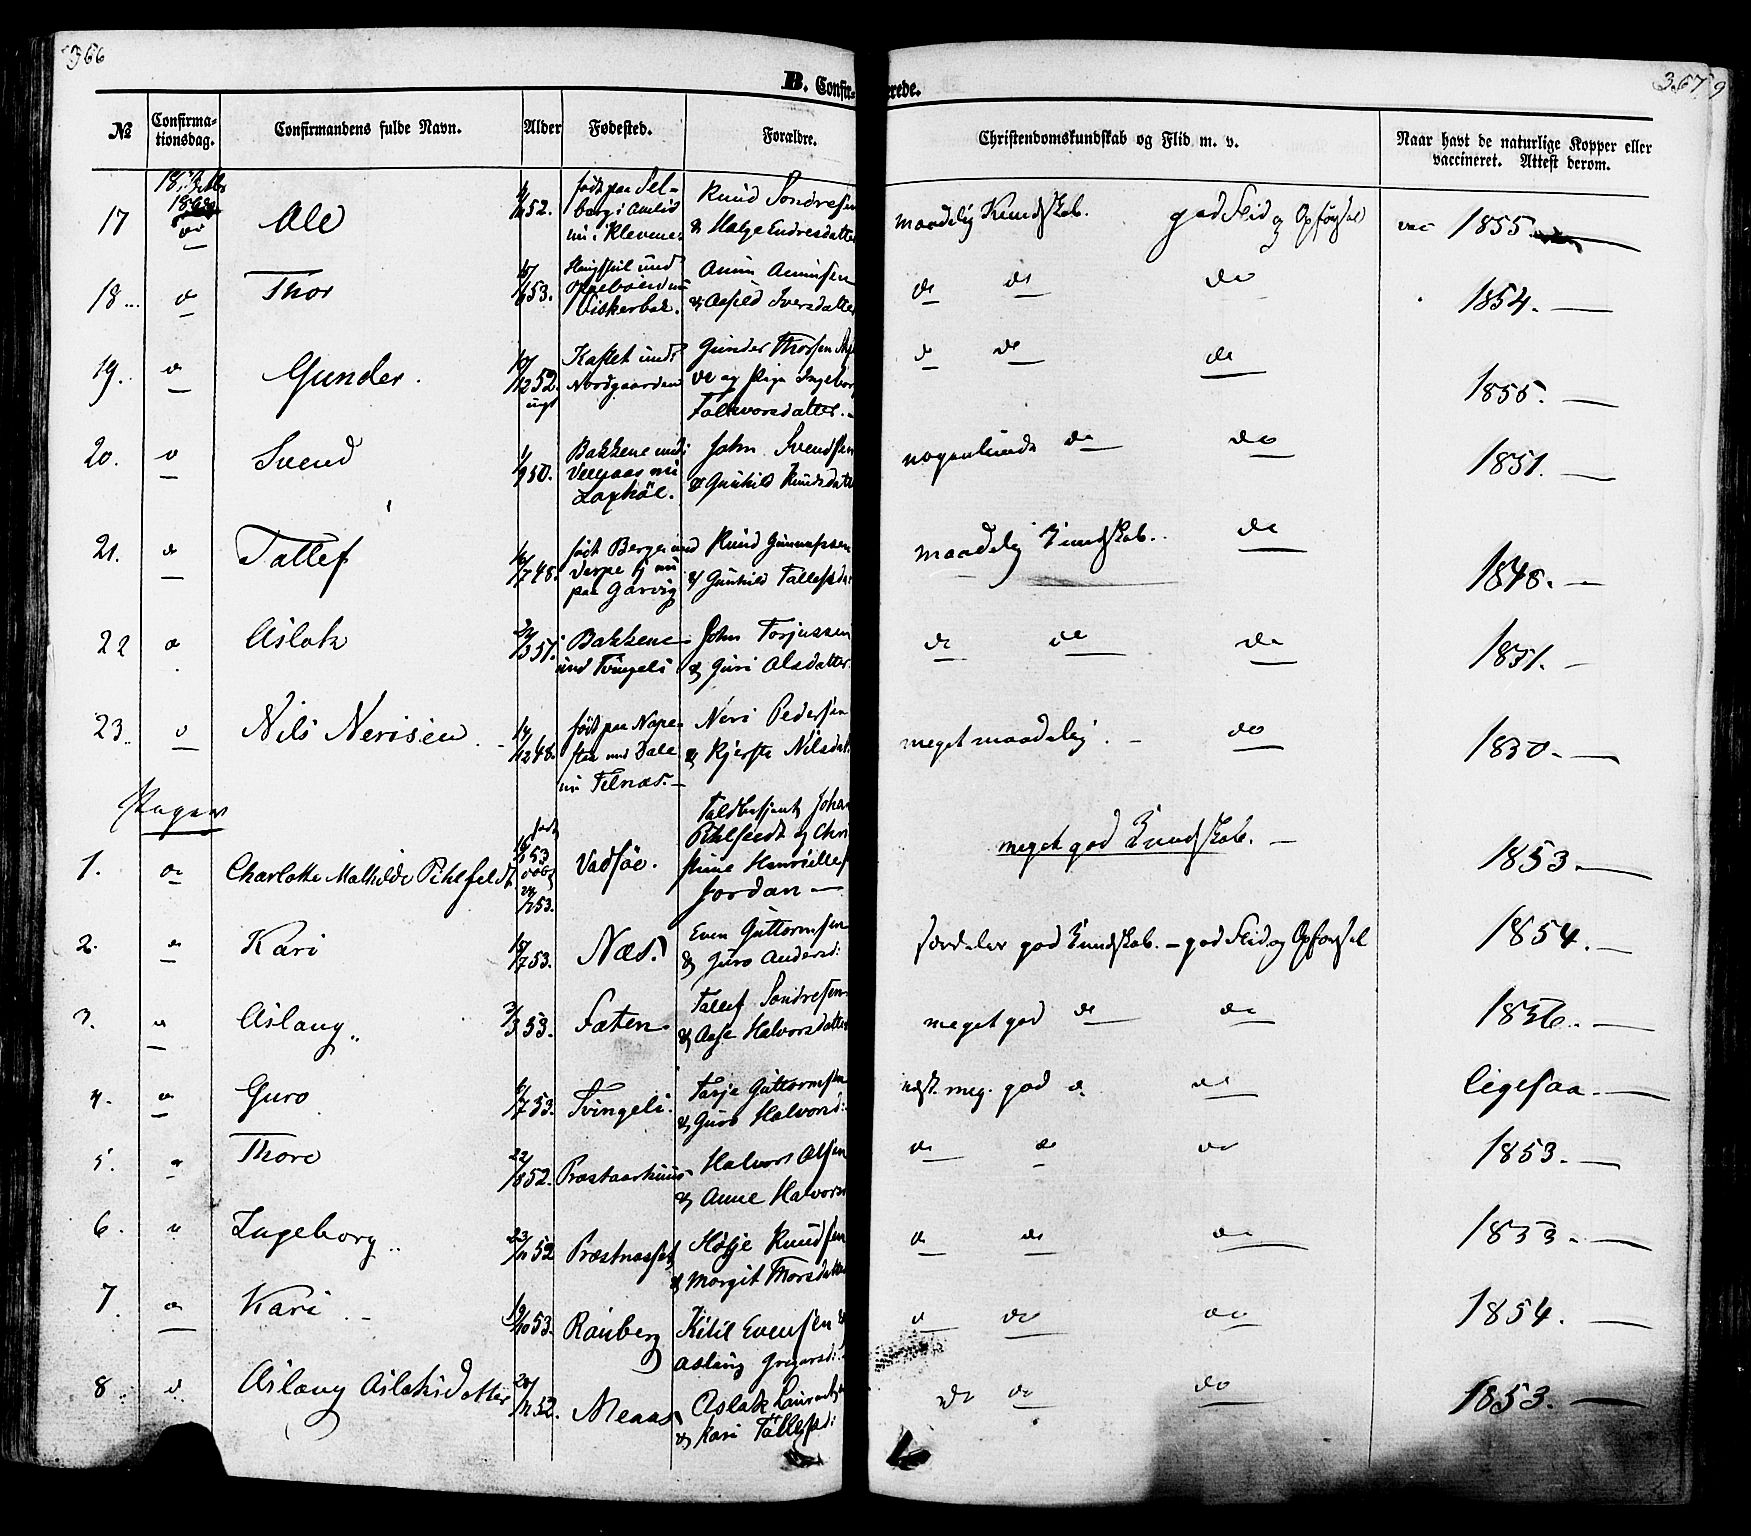 366
367
B. Confir-
erede.
№
Confirma-
tionsdag.
Confirmandens fulde Navn.
Alder
Fødested.
Forældre.
Christendomskundskab og Flid m. v.
Naar havt de naturlige Kopper eller
vaccineret. Attest derom.
17 Ole 52. født paa Sel-
berg i Amlid
nu i Klevene.
Knud Sondresen
& Helge Endresdatter
maadelig Kundskab. god Flid og Opførsel vac 1855.
18 do Thor 53.
Amun Amunsen
& Aasild Iversdatter
do do do 1854.
19. do Gunder. 52. Kastet under
Nordgaarden
Gunder Thorsen
og Pige Ingebor
Talkvorsdatter.
do do do 1855.
20. do Svend 1/9 50. Bakkene und:
nu
Laghöl.
John Svendsen
& Gunhild Knudsdatt
nogenlunde do do 1851.
21. do Tallef 48. født Bergen und
nu
paa Garvig
Knud Gunnufsen
& Gunhild Tallefsda:
maadelig Kundskab. do 1848.
22 do Aslak 51. Bakkene
und Tvingeli
John Torjussen
& Guri Olsdatter
do do do 1851.
23. do Nils Nerisen 48. født paa Nape-
und Dale
nu Felnæs.
Neri Pedersen
& Kjersti Nilsdat
meget maadelig. do 1850.
Piger
1. do Charlotte Mathilde Pihlfeldt født
53
døbt
53.
Vadsöe.
Johan
Pihlfeldt og Chri
stine Henriette
Jordan
meget god Kundskab. 1853
2. do Kari 18/7 53. Næs. Even Guttormsen
& Guro Andersd:
særdeles god Kundskab. - god Flid og Opførsel 1854.
3. do Aslaug 3/3 53. Faten Tallef Sondresen
& Aase Halvorsdatter
meget god do do 1856.
4. do Guro 53. Tvingeli. Tarje Guttormsen
& Guro Halvorsd:
næst. meg. god do do ligesaa.
5. do Thore 52. Præstaarhuus Halvor Olsen
& Anne Halvorsd
do do do 1853.
6. do Ingeborg 23/11 52 Præstnæsset Hølje Knudsen
& Margit Thorsdatte
do do do 1853.
7. do Kari 19/10 53. Rauberg Kitil Evensen &
Aslaug Gregarsd:
do do do 1854.
8 do Aslaug Aslaksdatter 20/11 52. Menaas Aslak
& Kari Tallefsd:
do do do 1853.